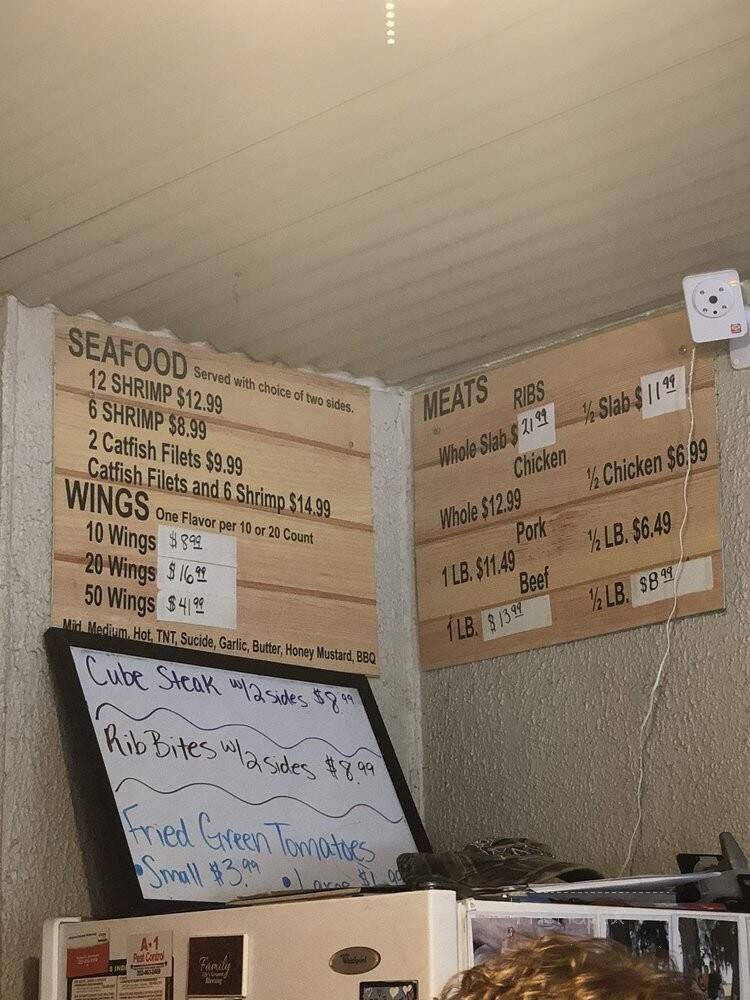 SEAFOOD Served with choice of two sides.
12 SHRIMP $12.99
6 SHRIMP $8.99
2 Catfish Filets $9.99
Catfish Filets and 6 Shrimp $14.99
WINGS One Flavor per 10 or 20 Count
10 Wings $8.99
20 Wings $16.99
50 Wings $41.99
Mid, Medium, Hot, TNT, Sucide, Garlic, Butter, Honey Mustard, BBQ
MEATS RIBS
Whole Slab $21.99 ½ Slab $11.99
Chicken
Whole $12.99 ½ Chicken $6.99
Pork
1 LB. $11.49 ½ LB. $6.49
Beef
1 LB. $13.99 ½ LB. $8.99
Cube Steak w/2 sides $8.99
Rib Bites w/2 sides $8.99
Fried Green Tomatoes
•Small $3.99 •Large
A-1
Pest Control
Family
Whirlpool